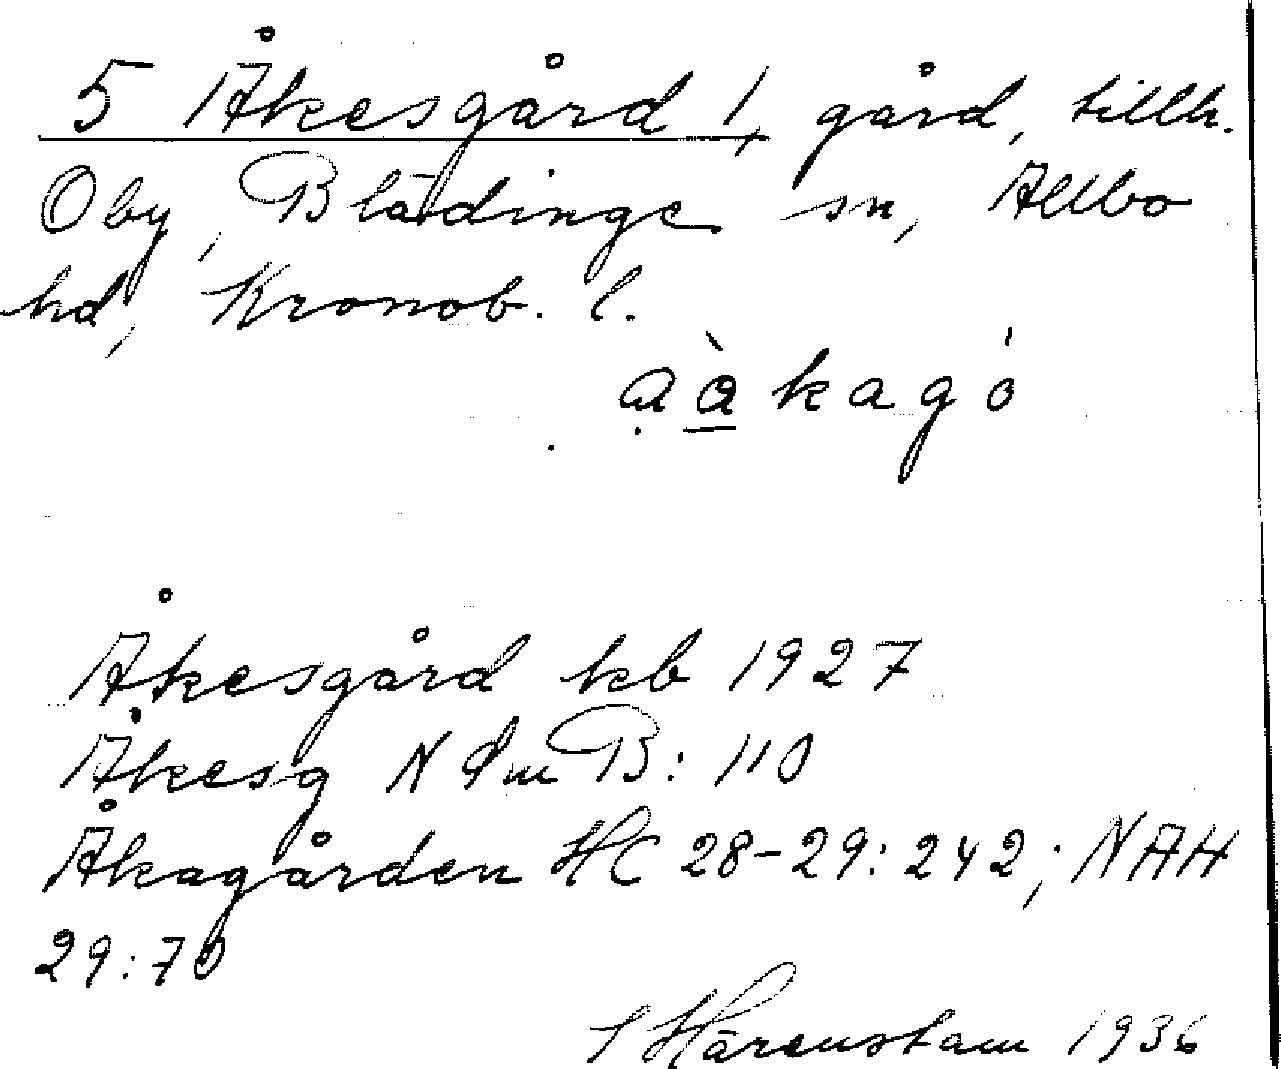 5 Åkesgård 1, gård, tillh.
Oby, Blädinge sn, Allbo
hd, Kronob. l.
kagó
Åkesgård kb 1927
Åkesg N Sm B: 110
Åkagården HC 28-29: 242; NAH
29:70
S Härenstam 1936